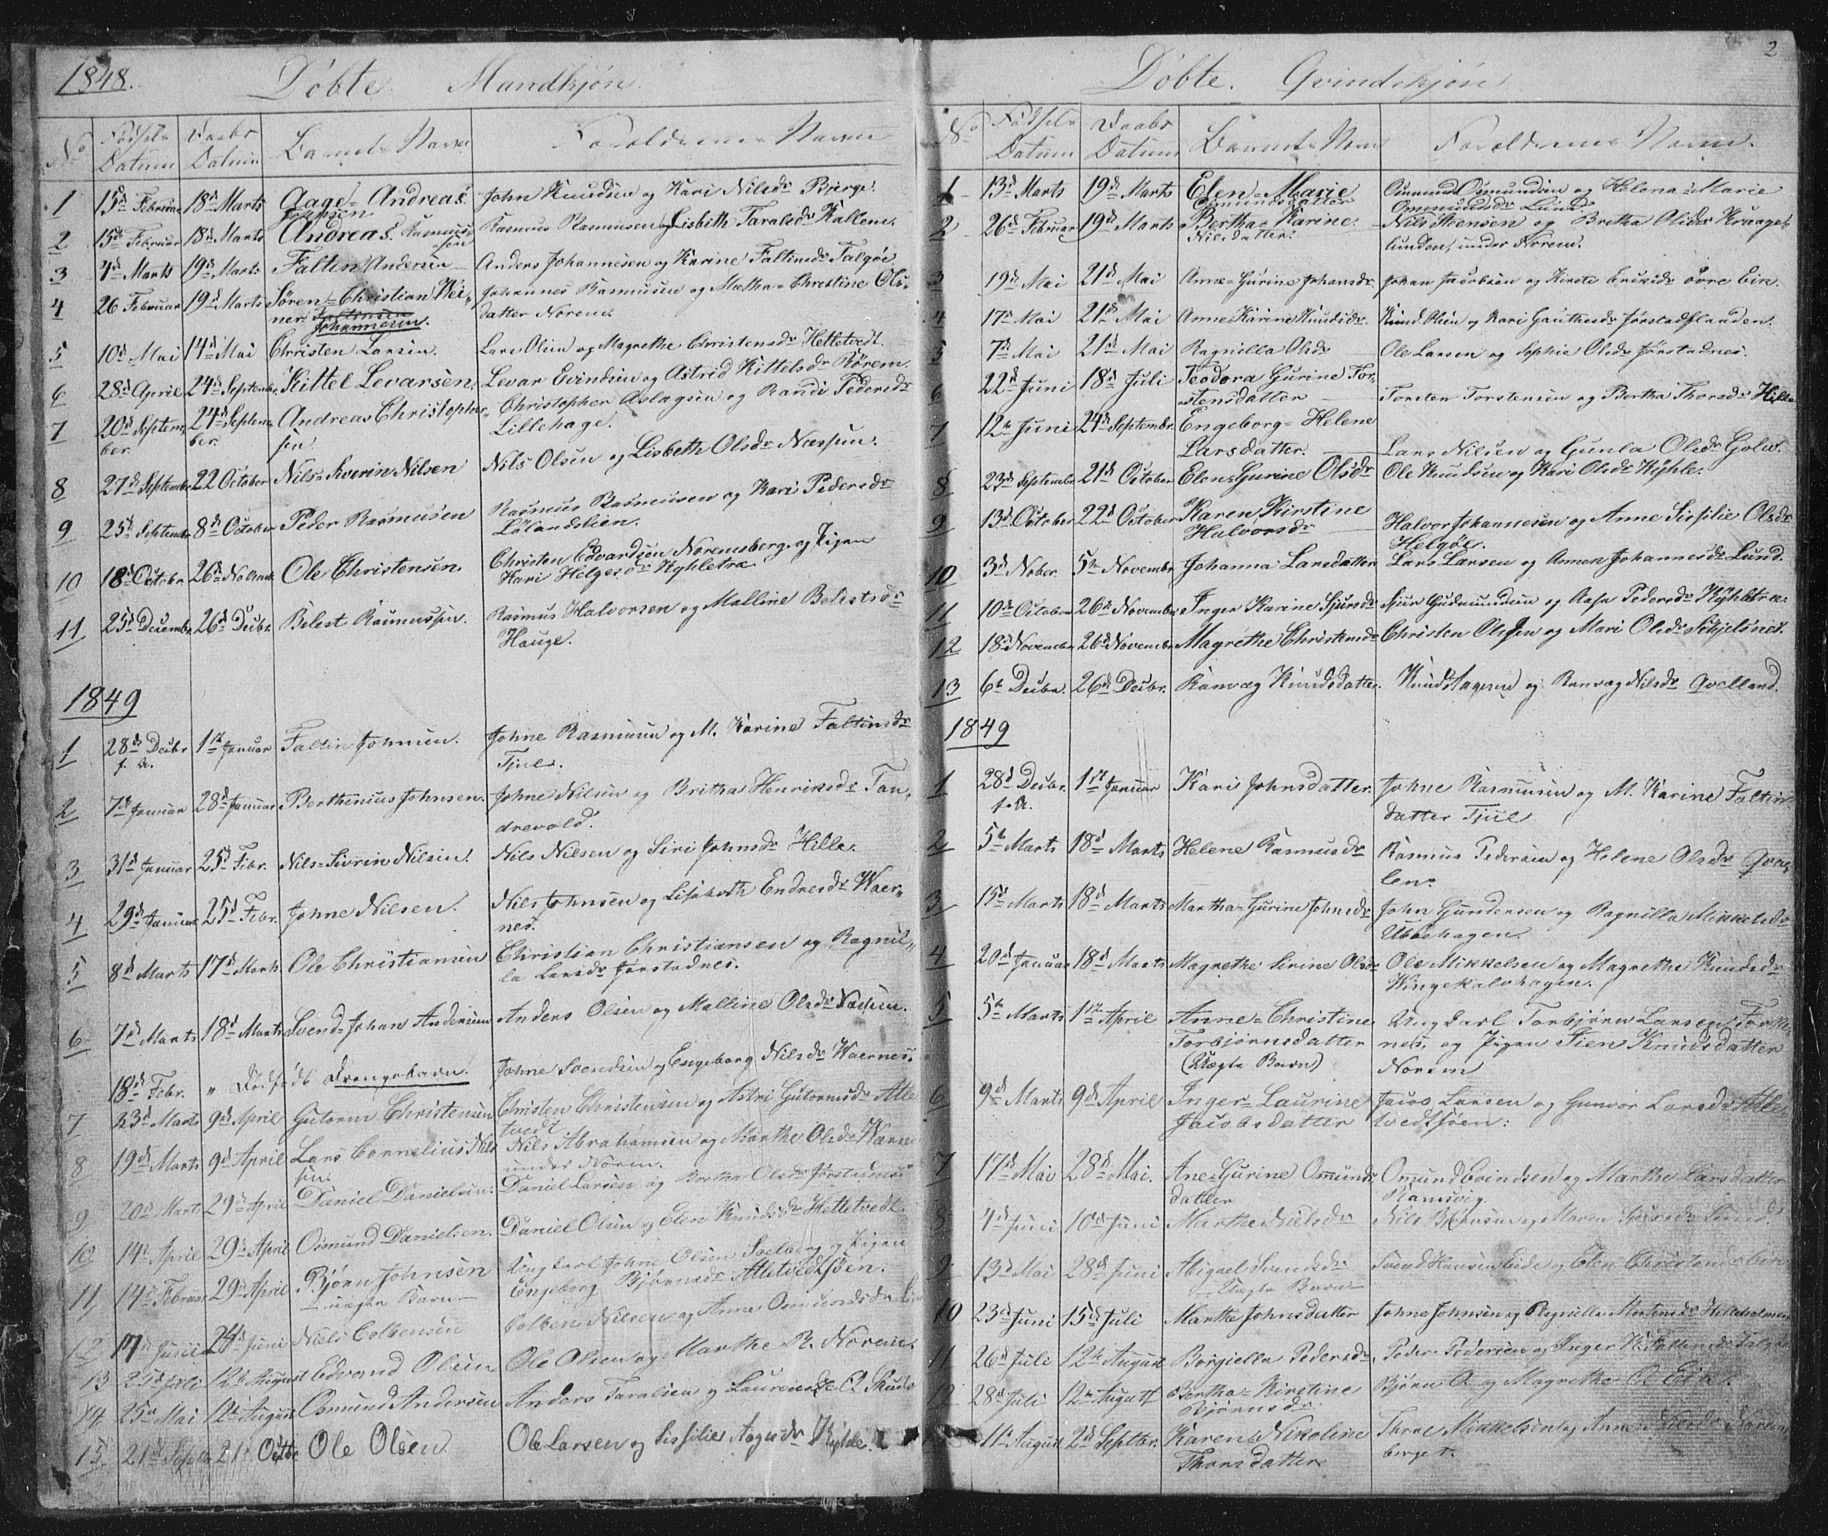 1848.
Døbte Mandkjøn.
No Fødsels Datum Daabs Datum Barnets Navn Forældrenes Navne
1 15d Februar 18d Marts Aage Andreas Johnsen John Knudsen og Kari Nilsdr Bjerge.
2 15d Februar 18d Marts Andreas Rasmussen Rasmus Rasmussen og Lisbeth Taralsdr
3 4d Marts 19d Marts Faltin Andersen Anders Johannesen og Karine Faltinsdr Talgøe
4 26 Februar 19d Marts Søren-Christian Johannesen. Johannes Rasmusen og Christine Ols-
datter Norem.
5 10d Mai 14d Mai Christen Larsen. Lars Olsen og Magrethe Christensdr Hettetvedt.
6 28d April 24d Septembr. Kittel Levarsen, Levar Evindsen og Astrid Kittelsdr
7 20d Septem- 24d Septem- Andreas Christophe- Christopher Aslagsen og Randi Pedersdr
ber. ber. sen Lillehage.
8 27d Septembr 22 October Nils-Severin Nilsen Nils Olsen og Lisbeth Olsdr
9 25d Septembr 8d October Peder Rasmusen Rasmus Rasmusen og Kari Pedersdr
Lølandslien.
10 18d Octobr 26d Ole Christensen Christen Edvardsen Noremsberg og Pigen
Kari Helgesdr Kyhletræ
11 25d Decembr 26d Decbr Belest Rasmussen. Rasmus Halvorsen og Malline Belestsdr
Hauge.
1849
1 28d Decbr 1st Januar Faltin Johnsen. Johne Rasmusen og M. Karine Faltinsdr
f. A. Tjul.
2 7de Januar 28d Januar Berthenius Johnsen. Johne Nilsen og Britha Henriksdr Tan-
drevold.
3 31d Januar 25d Febr. Nils-Sivrin Nilsen. Nils Nilsen og Siri Johnsdr Hille.
4 29d Januar 25d Febr. Johne Nilsen. Nils Johnsen og Lisabeth Endresdr Waer-
nes.
5 8d Marts 17d Marts Ole Christiansen Christian Christiansen og Ragnil-
la Larsdr Jørstadnes.
6 7d Marts 18d Marts Svend-Johan Andersen Anders Olsen og Malline Olsdr
18d Febr. " Dødfødt Drengebarn. Johne Svendsen og Engeborg Nilsdr Waernes.
7 23d Marts 9d April Gutorm Christensen Christen Christensen og Astri Gutormsdr Atle
tvedt
8 19d Marts 9d April Lars Cornelius Nils Nils Abrahamsen og Marthe Olsdr
sen. under Norem.
9 20d Marts 29d April Daniel Danielsen. Daniel Larsen og Bretha Olsdr Jørstadnes
10 14d April 29d April Osmund Danielsen. Daniel Olsen og Elen Knudsdr Hettetvedt.
11 14d Februar 29d April Bjørn Johnsen Ungkarl Johne Olsen og Pigen
uægte Barn Engeborg Bjørnsdr
12 Juni 24d Juni Niels Colbensen Colben Nielsen og Anne Osmundsdr
13 25d Juli 12te August Edvand Olsen Ole Olsen og Marthe R. Norem.
14 25d Mai 12te August Osmund Andersen Anders Taralsen og
15 21d Septbr 21d Octbr Ole Olsen. Ole Larsen og Sissilie Aagesdr Kyhle
2
Døbte. Qvindekjøn
No Fødsels Datum Daabs Datum Barnets Navn Forældrenes Navne.
1 13d Marts 19d Marts Elen-Marie Osmundsdatter Osmund Osmundsen og Helena-Marie
Osmundsdr Lund
2 26d Februar 19d Marts Bertha-Karine Nils Steensen og Bretha Olsdr Krange-
Nilsdatter. lunden, under Norem.
3 19d Mai 21d Mai Anne-Gurine Johansdr Johan Jacobsen og Kirste Eriksdr øvre Eik.
4 17d Mai 21d Mai Anne Karine Knudsdr. Knud Olsen og Kari Gautesdr Jørstadflanden.
5 7d Mai 21d Mai Ragnilla Olsdr Ole Larsen og Sophie Olsdr Jørstadnes.
6 22d Juni 18d Juli Teodora Gurine Tor-
stensdatter Torsten Torstensen og Bertha Thorsdr Hille
7 12te Juni 24d Septembr. Engeborg-Helene
Larsdatter. Lars Nilsen og Gunla Olsdr
8 23d Septembr 21d October Elen-Gurine Olsdr Ole Knudsen og Kari Olsdr Kyhle.
9 13d October 22d October Karen Kirstine
Halvorsdr Halvor Johannesen og Anne Sissilie Olsdr
Helgøe.
10 3d Nober. 5te Novembr Johanna Larsdatter Lars Larsen og Annen Johannesdr Lund.
11 10d October 26d Novembr Inger Karine Sjursdr Sjur Gudmundsen og Aasa Pedersdr Kyhletræ.
12 18d Novembr 26d Novembr Magrethe Christensdr Christen Olsen og Mari Olsdr Skjelsnes.
13 6te Decbr. 26d Decbr. Ranvæg Knudsdatter. Knud Aagesen og Ranvæg Nilsdr Qvelland.
1849
1 28d Decbr. 1st Januar Kari Johnsdatter. Johne Rasmusen og M. Karine Faltins-
f. A. datter Tjul
2 5te Marts 18d Marts Helene Rasmusdr Rasmus Pedersen og Helene Olsdr
3 15d Marts 18d Marts Martha-Gurine Johnsdr John Gundersen og Ragnilla Mikkelsdr
Ubbehagen.
4 20d Januar 18d Marts Magrethe Serine Olsdr Ole Mikkelsen og Magrethe Knudsdr
Wingekalvhagen.
5 5te Marts 1st April Anne-Christine Ungkarl Torbjørn Larsen
Torbjørnsdatter og Pigen Sien Knudsdatter
(Uægte Barn) Norem
6 9d Marts 9d April Inger-Laurine Jacob Larsen og Gunvor Larsdr Atle-
Jacobsdatter
7 17d Mai 28d Mai. Ane-Gurine Omunds- Omund Evindsen og Marthe Larsdatter
datter Ramsvig.
8 4d Juni 10d Juni Marthe Nielsdr Nils
9 13d Mai 28d Juni Abigael Svendsdr Svend Hansen Eide og Elen Christensdr
Uægte Barn
10 23d Juni 15d Juli Marthe Johnsdatter Johne Johnsen og Ragnilla
11 26d Juli 12te August Borgiella Pedersdr. Peder Pedersen og Inger
12 28d Juli 12te August Bertha-Kirstine Bjørn O. og Magrethe O.
Bjørnsdr
11te August 2d Septbr. Karen Nikoline Thore Mikkelsen og Annen
Thorsdatter berget.